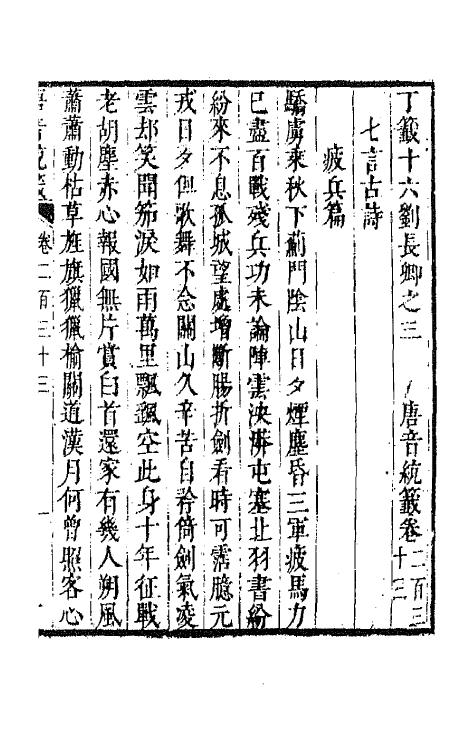 丁籤十六劉長卿之三　唐音統籤卷二百三十三
七言古詩
疲兵篇
驕虜乘秋下薊門陰山日夕煙塵昏三軍疲馬力
已盡百戰殘兵功未論陣雲泱漭屯塞北羽書紛
紛來不息孤城望處增斷腸折劍看時可霑臆元
戎日夕但歌舞不念關山久辛苦自矜倚劍氣凌
雲却笑聞笳淚如雨萬里飄颻空此身十年征戰
老胡塵赤心報國無片賞白首還家有幾人朔風
蕭蕭動枯草旌旗獵獵榆關道漢月何曾照客心
唐音統籤　卷二百三十三　一